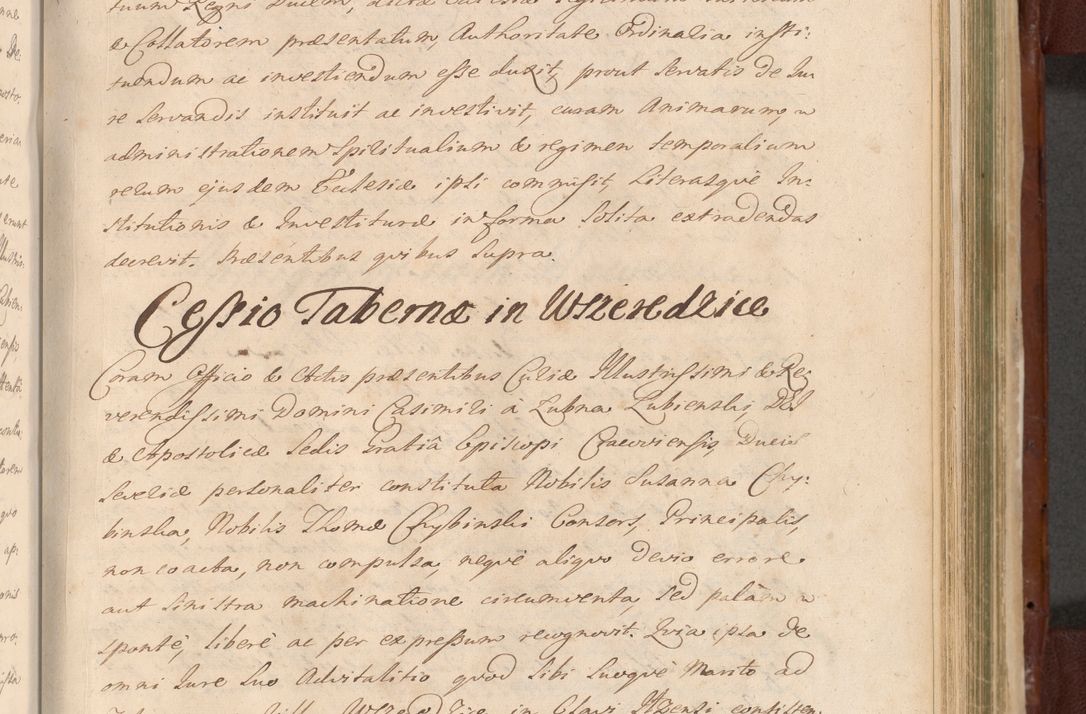 & Collatorem præsentatum, Authoritate Ordinaria insti:
tuendum ac investiendum esse duxit, prout servatis de Ju
re servandis instituit ac investivit, curam Animarum, ac
administrationem Spiritualium & regimen temporalium
rerum ejusdem Ecclesiæ ipsi commisit, Literasque In:
stitutionis & Investituræ in forma solita extradendas
decrevit. Præsentibus quibus supra.
Cessio Tabernæ in Wszeredzice
Coram Officio & Actis præsentibus Curiæ Illustrissimi & Re
verendissimi Domini Casimiri à Łubna Łubienski, Dei
& Apostolicæ Sedis Gratiâ Episcopi Cracoviensis, Ducis
Severiæ personaliter constituta Nobilis Susanna Chy:
binska, Nobilis Thomæ Chybinski Consors, Principalis,
non coacta, non compulsa, neque aliquo devio errore
aut sinistra machinatione circumventa, sed palàm ac
spontè, liberè ac per expressum recognovit. Quia ipsa de
omni Jure suo Advitalitio quod sibi suoque Marito ad